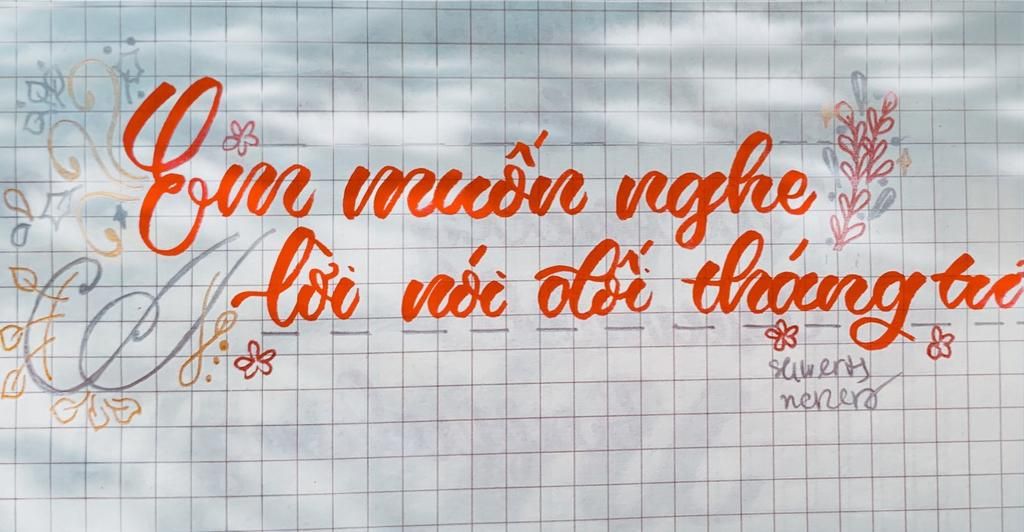 Em muốn nghe
lời nói dối tháng tư